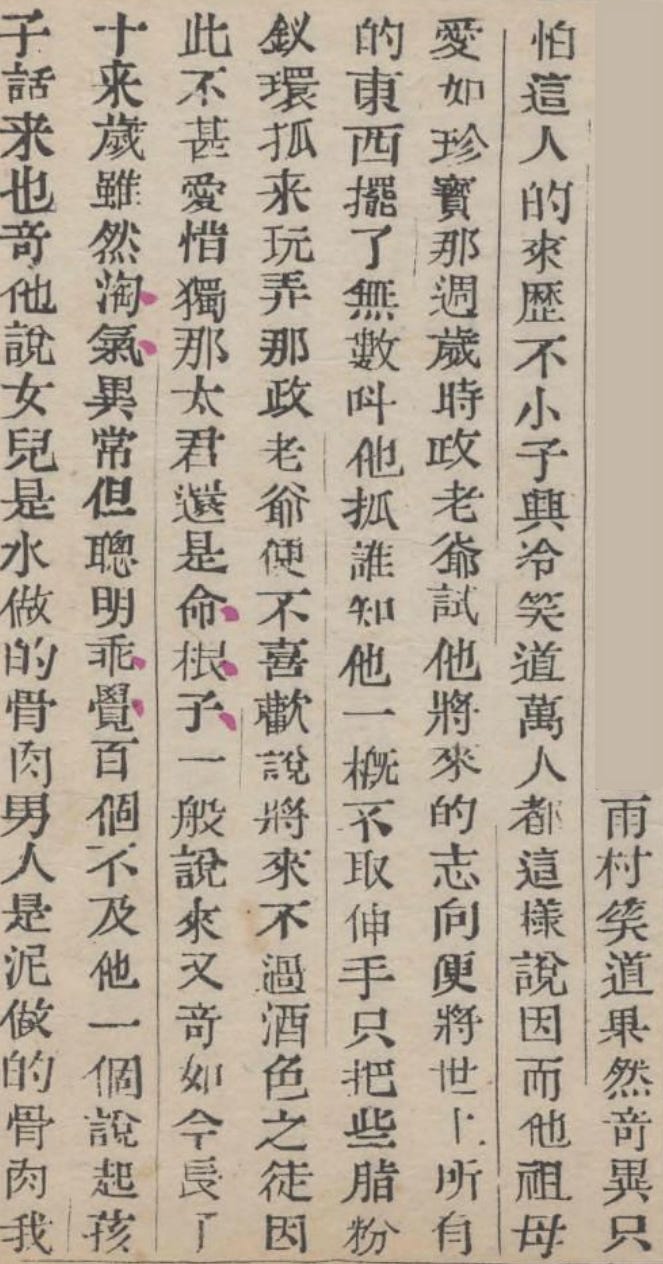 雨村笑道果然奇異只
怕這人的來歷不小子興冷笑道萬人都這樣說因而他祖母
愛如珍寶那週歲時政老爺試他將來的志向便將世上所有
的東西擺了無數叫他抓誰知他一概不取伸手只把些脂粉
釵環抓来玩弄那政老爺便不喜歡說將來不過酒色之徒因
此不甚愛惜獨那太君還是命根子一般說來又奇如今長了
十来歲雖然淘氣異常但聰明乖覺百個不及他一個說起孩
子話来也奇他說女兒是水做的骨肉男人是泥做的骨肉我